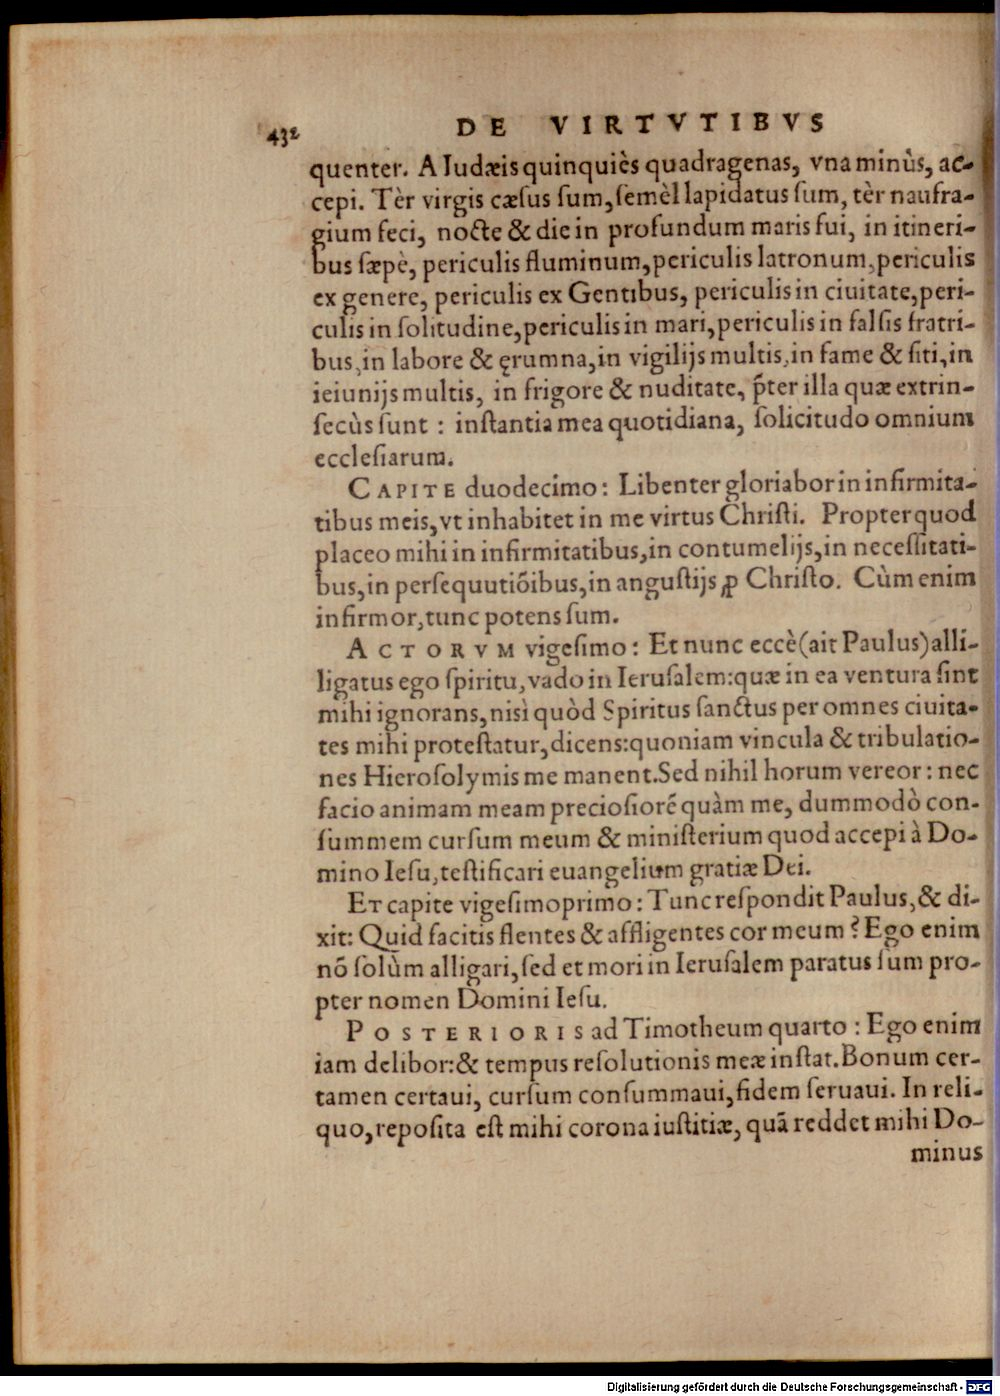 432 DE VIRTVTIBVS
quenter. A Iudæis quinquiès quadragenas, vna minùs, ac-
cepi. Tèr virgis cæſus ſum, ſemèl lapidatus ſum, tèr naufra-
gium feci, nocte & die in profundum maris fui, in itineri-
bus ſæpè, periculis fluminum, periculis latronum, periculis
ex genere, periculis ex Gentibus, periculis in ciuitate, peri-
culis in ſolitudine, periculis in mari, periculis in falſis fratri-
bus, in labore & ęrumna, in vigilijs multis, in fame & ſiti, in
ieiunijs multis, in frigore & nuditate, p̃ter illa quæ extrin-
ſecùs ſunt : inſtantia mea quotidiana, ſolicitudo omnium
eccleſiarum.
CAPITE duodecimo: Libenter gloriabor in infirmita-
tibus meis, vt inhabitet in me virtus Chriſti. Propter quod
placeo mihi in infirmitatibus, in contumelijs, in neceſſitati-
bus, in perſequutiõibus, in anguſtijs ꝓ Chriſto. Cùm enim
infirmor, tunc potens ſum.
ACTORVM vigeſimo: Et nunc eccè (ait Paulus) alli-
ligatus ego ſpiritu, vado in Ieruſalem: quæ in ea ventura ſint
mihi ignorans, niſi quòd Spiritus ſanctus per omnes ciuita-
tes mihi proteſtatur, dicens: quoniam vincula & tribulatio-
nes Hieroſolymis me manent. Sed nihil horum vereor: nec
facio animam meam precioſiorẽ quàm me, dummodò con-
ſummem curſum meum & miniſterium quod accepi à Do-
mino Ieſu, teſtificari euangelium gratiæ Dei.
ET capite vigeſimoprimo: Tunc reſpondit Paulus, & di-
xit: Quid facitis flentes & affligentes cor meum? Ego enim
nõ ſolùm alligari, ſed et mori in Ieruſalem paratus ſum pro-
pter nomen Domini Ieſu.
POSTERIORIS ad Timotheum quarto: Ego enim
iam delibor: & tempus reſolutionis meæ inſtat. Bonum cer-
tamen certaui, curſum conſummaui, fidem ſeruaui. In reli-
quo, repoſita eſt mihi corona iuſtitiæ, quã reddet mihi Do-
minus
Digitalisierung gefördert durch die Deutsche Forschungsgemeinschaft - DFG